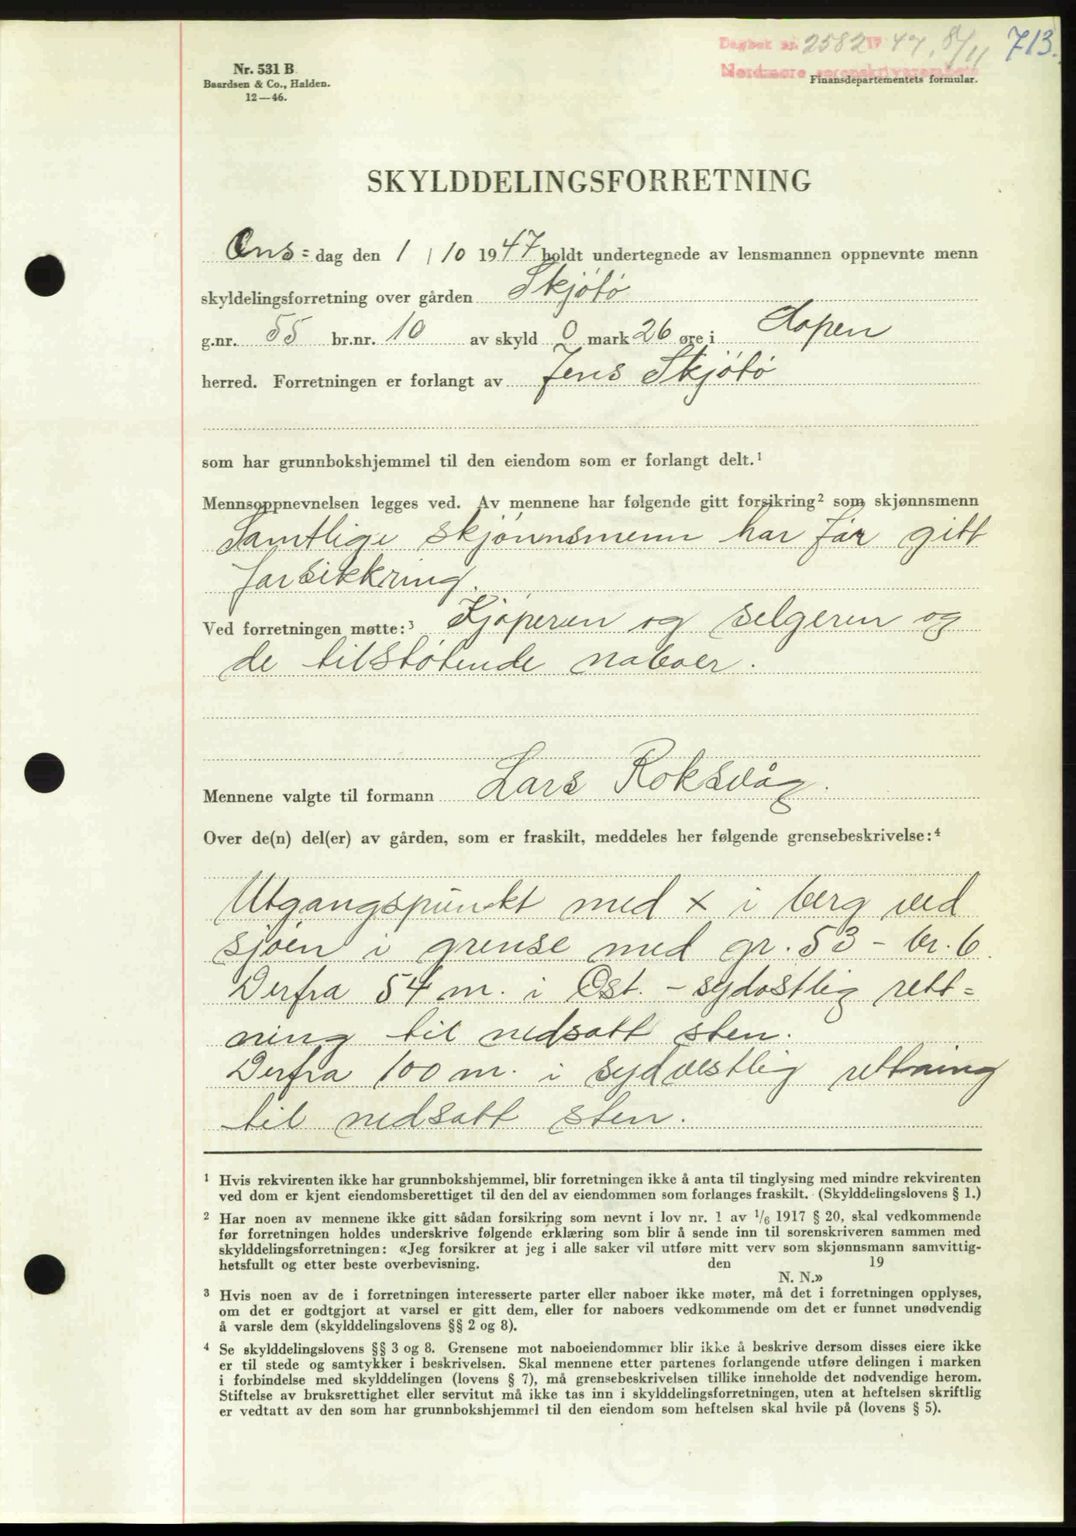 Dagbok nr. 2582 19 47, 8/11 713.
Nordmøre sorenskriverembete
Nr. 531 B
Baardsen & Co., Halden.
12—46.
Finansdepartementets formular.
SKYLDDELINGSFORRETNING
Ons= dag den 1 / 10 1947 holdt undertegnede av lensmannen oppnevnte menn
skyldelingsforretning over gården Skjøtø
g.nr. 55 br.nr. 10 av skyld 0 mark 26 øre i Hopen
herred. Forretningen er forlangt av Jens Skjøtø
som har grunnbokshjemmel til den eiendom som er forlangt delt.¹
Mennsoppnevnelsen legges ved. Av mennene har følgende gitt forsikring² som skjønnsmenn
Samtlige skjønnsmenn har før gitt
forsikkring.
Ved forretningen møtte:³ Kjøperen og selgeren og
de tilstøtende naboer.
Mennene valgte til formann Lars Roksvåg.
Over de(n) del(er) av gården, som er fraskilt, meddeles her følgende grensebeskrivelse:⁴
Utgangspunkt med x i berg ved
sjøen i grense med gr. 53 - br. 6.
Derfra 54 m. i Øst. - sydøstlig rett=
ning til nedsatt sten.
Derfra 100 m. i sydvestlig rettning
til nedsatt sten.
¹ Hvis rekvirenten ikke har grunnbokshjemmel, blir forretningen ikke å anta til tinglysing med mindre rekvirenten
ved dom er kjent eiendomsberettiget til den del av eiendommen som forlanges fraskilt. (Skylddelingslovens § 1.)
² Har noen av mennene ikke gitt sådan forsikring som nevnt i lov nr. 1 av 1/6 1917 § 20, skal vedkommende
før forretningen holdes underskrive følgende erklæring som blir å sende inn til sorenskriveren sammen med
skylddelingsforretningen: «Jeg forsikrer at jeg i alle saker vil utføre mitt verv som skjønnsmann samvittig-
hetsfullt og etter beste overbevisning. den 19
N. N.»
³ Hvis noen av de i forretningen interesserte parter eller naboer ikke møter, må det i forretningen opplyses,
om det er godtgjort at varsel er gitt dem, eller for naboers vedkommende om det er funnet unødvendig
å varsle dem (skylddelingslovens §§ 2 og 8).
⁴ Se skylddelingslovens §§ 3 og 8. Grensene mot naboeiendommer blir ikke å beskrive dersom disses eiere ikke
er til stede og samtykker i beskrivelsen. Skal mennene etter partenes forlangende utføre delingen i marken
i forbindelse med skylddelingen (lovens § 7), må grensebeskrivelsen tillike inneholde det nødvendige herom.
Stiftelse av bruksrettighet eller servitut må ikke tas inn i skylddelingsforretningen, uten at heftelsen skriftlig
er vedtatt av den som har grunnbokshjemmel til den eiendom som heftelsen skal hvile på (lovens § 5).